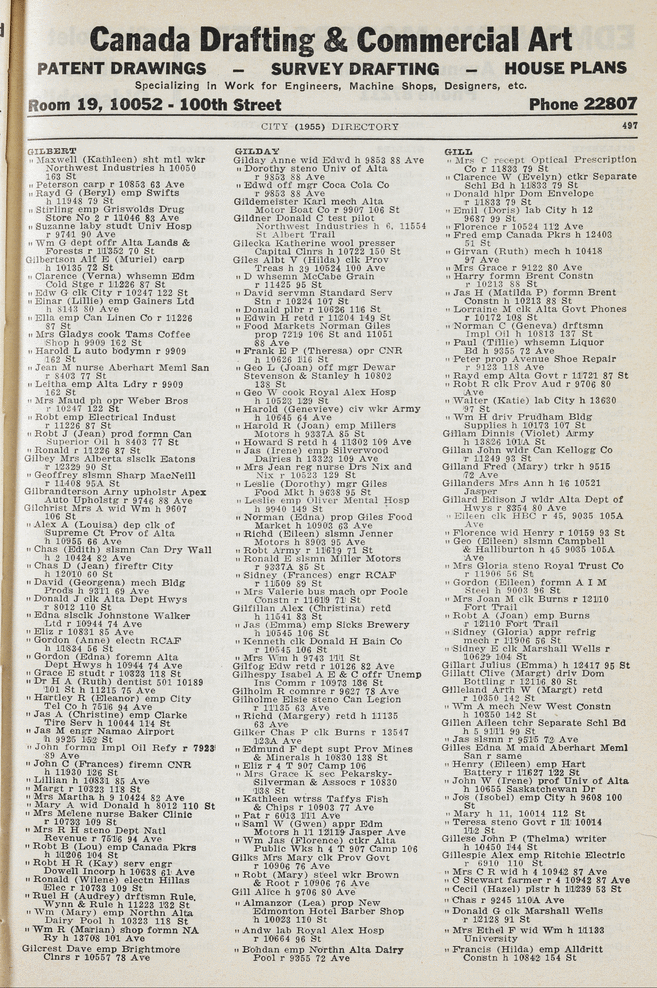 Canada Drafting & Commercial Art
PATENT DRAWINGS — SURVEY DRAFTING — HOUSE PLANS
Specializing in Work for Engineers, Machine Shops, Designers, etc.
Room 19, 10052 - 100th Street Phone 22807
CITY (1955) DIRECTORY 497
GILBERT
" Maxwell (Kathleen) sht mtl wkr
Northwest Industries h 10050
163 St
" Peterson carp r 10853 63 Ave
" Rayd G (Beryl) emp Swifts
h 11948 79 St
" Stirling emp Griswolds Drug
Store No 2 r 11046 83 Ave
" Suzanne laby studt Univ Hosp
r 9741 90 Ave
" Wm G dept offr Alta Lands &
Forests r 11352 70 St
Gilbertson Alf E (Muriel) carp
h 10135 72 St
" Clarence (Verna) whsemn Edm
Cold Stge r 11226 87 St
" Edw G clk City r 10247 122 St
" Einar (Lillie) emp Gainers Ltd
h 8143 80 Ave
" Ella emp Can Linen Co r 11226
87 St
" Mrs Gladys cook Tams Coffee
Shop h 9909 162 St
" Harold L auto bodymn r 9909
162 St
" Jean M nurse Aberhart Meml San
r 8403 77 St
" Leitha emp Alta Ldry r 9909
162 St
" Mrs Maud ph opr Weber Bros
r 10247 122 St
" Robt emp Electrical Indust
r 11226 87 St
" Robt J (Jean) prod formn Can
Superior Oil h 8403 77 St
" Ronald r 11226 87 St
Gilbey Mrs Alberta slsclk Eatons
r 12329 90 St
" Geoffrey slsmn Sharp MacNeill
r 11408 95A St
Gilbrandterson Army upholstr Apex
Auto Upholstg r 9746 88 Ave
Gilchrist Mrs A wid Wm h 9607
106 St
" Alex A (Louisa) dep clk of
Supreme Ct Prov of Alta
h 10955 66 Ave
" Chas (Edith) slsmn Can Dry Wall
h 2 10424 82 Ave
" Chas D (Jean) fireftr City
h 12010 60 St
" David (Georgena) mech Bldg
Prods h 9311 69 Ave
" Donald J clk Alta Dept Hwys
r 8012 110 St
" Edna slsclk Johnstone Walker
Ltd r 10944 74 Ave
" Eliz r 10831 85 Ave
" Gordon (Anne) electn RCAF
h 11834 56 St
" Gordon (Edna) foremn Alta
Dept Hwys h 10944 74 Ave
" Grace E studt r 10323 118 St
" Dr H A (Ruth) dentist 501 10189
101 St h 11215 75 Ave
" Hartley R (Eleanor) emp City
Tel Co h 7516 94 Ave
" Jas A (Christine) emp Clarke
Tire Serv h 10044 114 St
" Jas M engr Namao Airport
h 9925 152 St
" John formn Impl Oil Refy r 7923
89 Ave
" John C (Frances) firemn CNR
h 11930 126 St
" Lillian h 10831 85 Ave
" Margt r 10323 118 St
" Mrs Martha h 9 10424 82 Ave
" Mary A wid Donald h 8012 110 St
" Mrs Melene nurse Baker Clinic
r 10733 109 St
" Mrs R H steno Dept Natl
Revenue r 7516 94 Ave
" Robt B (Lou) emp Canada Pkrs
h 11206 104 St
" Robt H R (Kay) serv engr
Dowell Incorp h 10638 61 Ave
" Ronald (Wilne) electn Hillas
Elec r 10733 109 St
" Ruel H (Audrey) drftsmn Rule,
Wynn & Rule h 11223 132 St
" Wm (Mary) emp Northn Alta
Dairy Pool h 10323 118 St
" Wm R (Marian) shop formn NA
Ry h 13708 101 Ave
Gilcrest Dave emp Brightmore
Clnrs r 10557 78 Ave
GILDAY
Gilday Anne wid Edwd h 9853 88 Ave
" Dorothy steno Univ of Alta
r 9853 88 Ave
" Edwd off mgr Coca Cola Co
r 9853 88 Ave
Gildemeister Karl mech Alta
Motor Boat Co r 9907 106 St
Gildner Donald C test pilot
Northwest Industries h 6, 11554
St Albert Trail
Gilecka Katherine wool presser
Capital Clnrs h 10722 150 St
Giles Albt V (Hilda) clk Prov
Treas h 39 10524 100 Ave
" D whsemn McCabe Grain
r 11425 95 St
" David servmn Standard Serv
Stn r 10224 107 St
" Donald plbr r 10626 116 St
" Edwin H retd r 11204 149 St
" Food Markets Norman Giles
prop 7219 106 St and 11051
88 Ave
" Frank E P (Theresa) opr CNR
h 10626 116 St
" Geo L (Joan) off mgr Dewar
Stevenson & Stanley h 10802
138 St
" Geo W cook Royal Alex Hosp
h 10523 129 St
" Harold (Genevieve) civ wkr Army
h 10645 64 Ave
" Harold R (Joan) emp Millers
Motors h 9337A 85 St
" Howard S retd h 4 11302 109 Ave
" Jas (Irene) emp Silverwood
Dairies h 13323 109 Ave
" Mrs Jean reg nurse Drs Nix and
Nix r 10523 129 St
" Leslie (Dorothy) mgr Giles
Food Mkt h 9638 95 St
" Leslie emp Oliver Mental Hosp
h 9940 149 St
" Norman (Edna) prop Giles Food
Market h 10903 63 Ave
" Richd (Eileen) slsmn Jenner
Motors h 8903 95 Ave
" Robt Army r 11619 71 St
" Ronald E slsmn Miller Motors
r 9337A 85 St
" Sidney (Frances) engr RCAF
r 11509 89 St
" Mrs Valerie bus mach opr Poole
Constn r 11619 71 St
Gilfillan Alex (Christina) retd
h 11541 83 St
" Jas (Emma) emp Sicks Brewery
h 10545 106 St
" Kenneth clk Donald H Bain Co
r 10545 106 St
" Mrs Wm h 9743 111 Ave
Gilfog Edw retd r 10126 82 Ave
Gilhespy Isabel A E & C offr Unemp
Ins Comm r 10973 136 St
Gilholm R comnre r 9627 78 Ave
Gilholme Elsie steno Can Legion
r 11135 63 Ave
" Richd (Margery) retd h 11135
63 Ave
Gilker Chas P clk Burns r 13547
123A Ave
" Edmund F dept supt Prov Mines
& Minerals h 10830 138 St
" Eliz r 4 T 907 Camp 106
" Mrs Grace K sec Pekarsky-
Silverman & Assocs r 10830
138 St
" Kathleen wtrss Taffys Fish
& Chips r 10903 77 Ave
" Pat r 6013 111 Ave
" Saml W (Gwen) appr Edm
Motors h 11 12119 Jasper Ave
" Wm Jas (Florence) ctkr Alta
Public Wks h 4 T 907 Camp 106
Gilks Mrs Mary clk Prov Govt
r 10906 76 Ave
" Robt (Mary) steel wkr Brown
& Root r 10906 76 Ave
Gill Alice h 9706 80 Ave
" Almanzor (Lea) prop New
Edmonton Hotel Barber Shop
h 10023 110 St
" Andw lab Royal Alex Hosp
r 10664 96 St
" Bohdan emp Northn Alta Dairy
Pool r 9355 72 Ave
GILL
" Mrs C recept Optical Prescription
Co r 11833 79 St
" Clarence W (Evelyn) ctkr Separate
Schl Bd h 11833 79 St
" Donald hlpr Dom Envelope
r 11833 79 St
" Emil (Doris) lab City h 12
9687 99 St
" Florence r 10524 112 Ave
" Fred emp Canada Pkrs h 12403
51 St
" Girvan (Ruth) mech h 10418
97 Ave
" Mrs Grace r 9122 80 Ave
" Harry formn Brent Constn
r 10213 88 St
" Jas H (Matilda P) formn Brent
Constn h 10213 88 St
" Lorraine M clk Alta Govt Phones
r 10172 108 St
" Norman C (Geneva) drftsmn
Impl Oil h 10813 137 St
" Paul (Tillie) whsemn Liquor
Bd h 9355 72 Ave
" Peter prop Avenue Shoe Repair
r 9123 118 Ave
" Rayd emp Alta Govt r 11721 87 St
" Robt R clk Prov Aud r 9706 80
Ave
" Walter (Katie) lab City h 13630
97 St
" Wm H driv Prudham Bldg
Supplies h 10173 107 St
Gillam Dinnis (Violet) Army
h 13826 101A St
Gillan John wldr Can Kellogg Co
r 11249 93 St
Gilland Fred (Mary) trkr h 9515
72 Ave
Gillanders Mrs Ann h 16 10521
Jasper
Gillard Edison J wldr Alta Dept of
Hwys r 8354 80 Ave
" Eileen clk HBC r 45, 9035 105A
Ave
" Florence wid Henry r 10159 93 St
" Geo (Eileen) slsmn Campbell
& Halliburton h 45 9035 105A
Ave
" Mrs Gloria steno Royal Trust Co
r 11906 56 St
" Gordon (Eileen) formn A I M
Steel h 9003 96 St
" Mrs Joan M clk Burns r 12110
Fort Trail
" Robt A (Joan) emp Burns
r 12110 Fort Trail
" Sidney (Gloria) appr refrig
mech r 11906 56 St
" Sidney E clk Marshall Wells r
10629 104 St
Gillart Julius (Emma) h 12417 95 St
Gillatt Clive (Margt) driv Dom
Bottling r 12116 80 St
Gilleland Arth W (Margt) retd
r 10350 142 St
" Wm A mech New West Constn
h 10350 142 St
Gillen Aileen tchr Separate Schl Bd
h 5 9111 99 St
" Jas slsmn r 9515 72 Ave
Gilles Edna M maid Aberhart Meml
San r same
" Henry (Eileen) emp Hart
Battery r 11627 122 St
" John W (Irene) prof Univ of Alta
h 10655 Saskatchewan Dr
" Jos (Isobel) emp City h 9608 100
St
" Mary h 11, 10014 112 St
" Teresa steno Govt r 11 10014
112 St
Gillese John P (Thelma) writer
h 10450 144 St
Gillespie Alex emp Ritchie Electric
r 6910 110 St
" Mrs C R wid h 4 10942 87 Ave
" C Stewart farmer r 4 10942 87 Ave
" Cecil (Hazel) plstr h 11239 53 St
" Chas r 9245 110A Ave
" Donald G clk Marshall Wells
r 12128 91 St
" Mrs Ethel F wid Wm h 11133
University
" Francis (Hilda) emp Alldritt
Constn h 10842 154 St